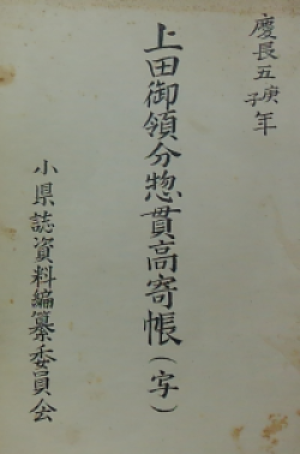 慶長五庚子年
上田御領分惣貫高寄帳(字)
小県誌資料編纂委員会